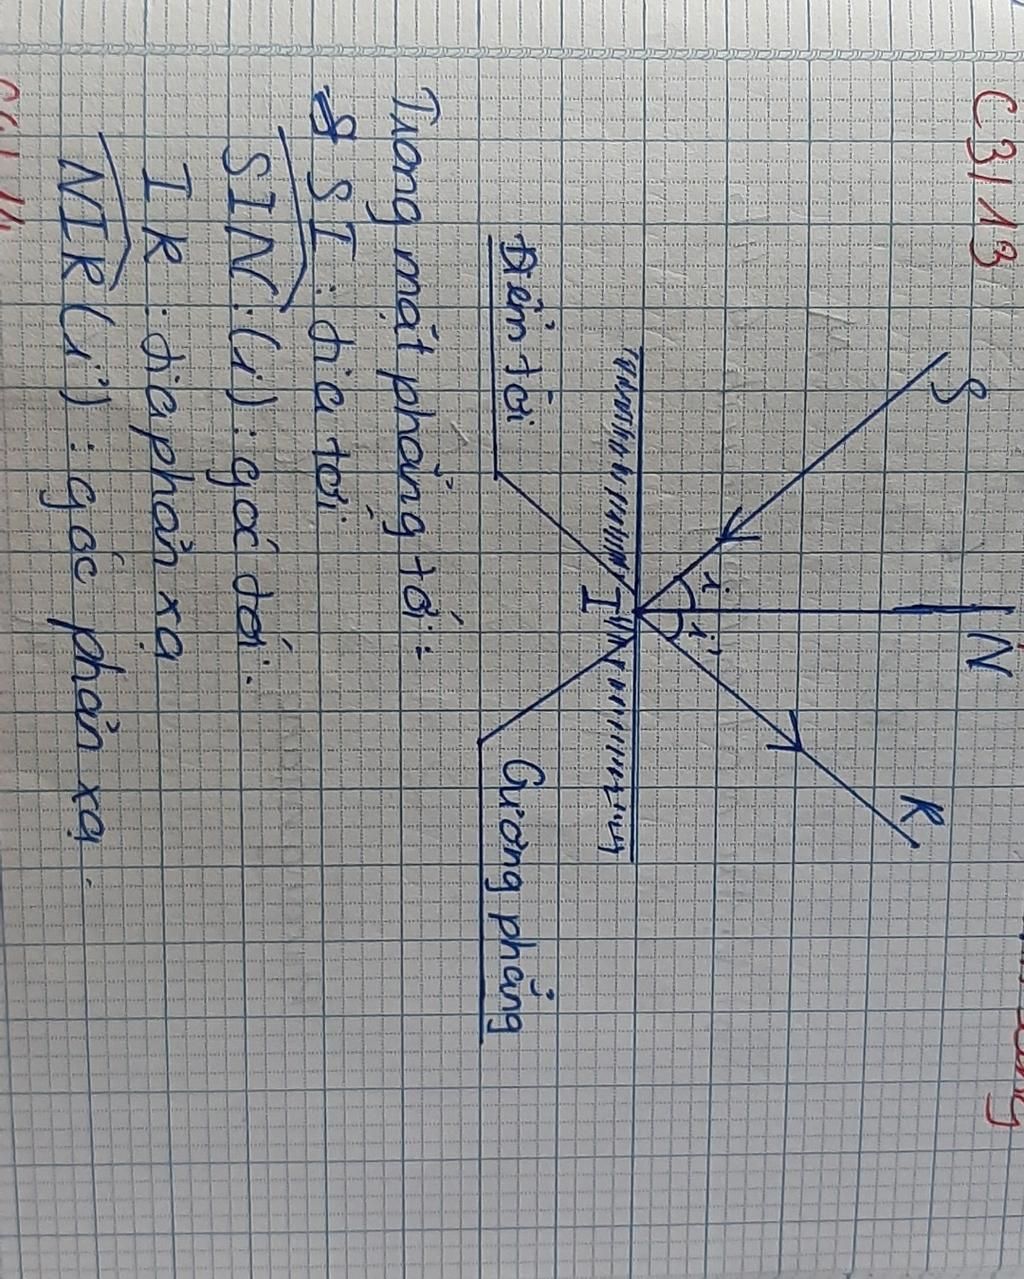 C3/13
S
N
R
i
i'
I
Điểm tới
Gương phẳng
Trong mặt phẳng tới:
SI : tia tới
SIN (i) : góc tới.
IR : tia phản xạ
NIR (i') : góc phản xạ.